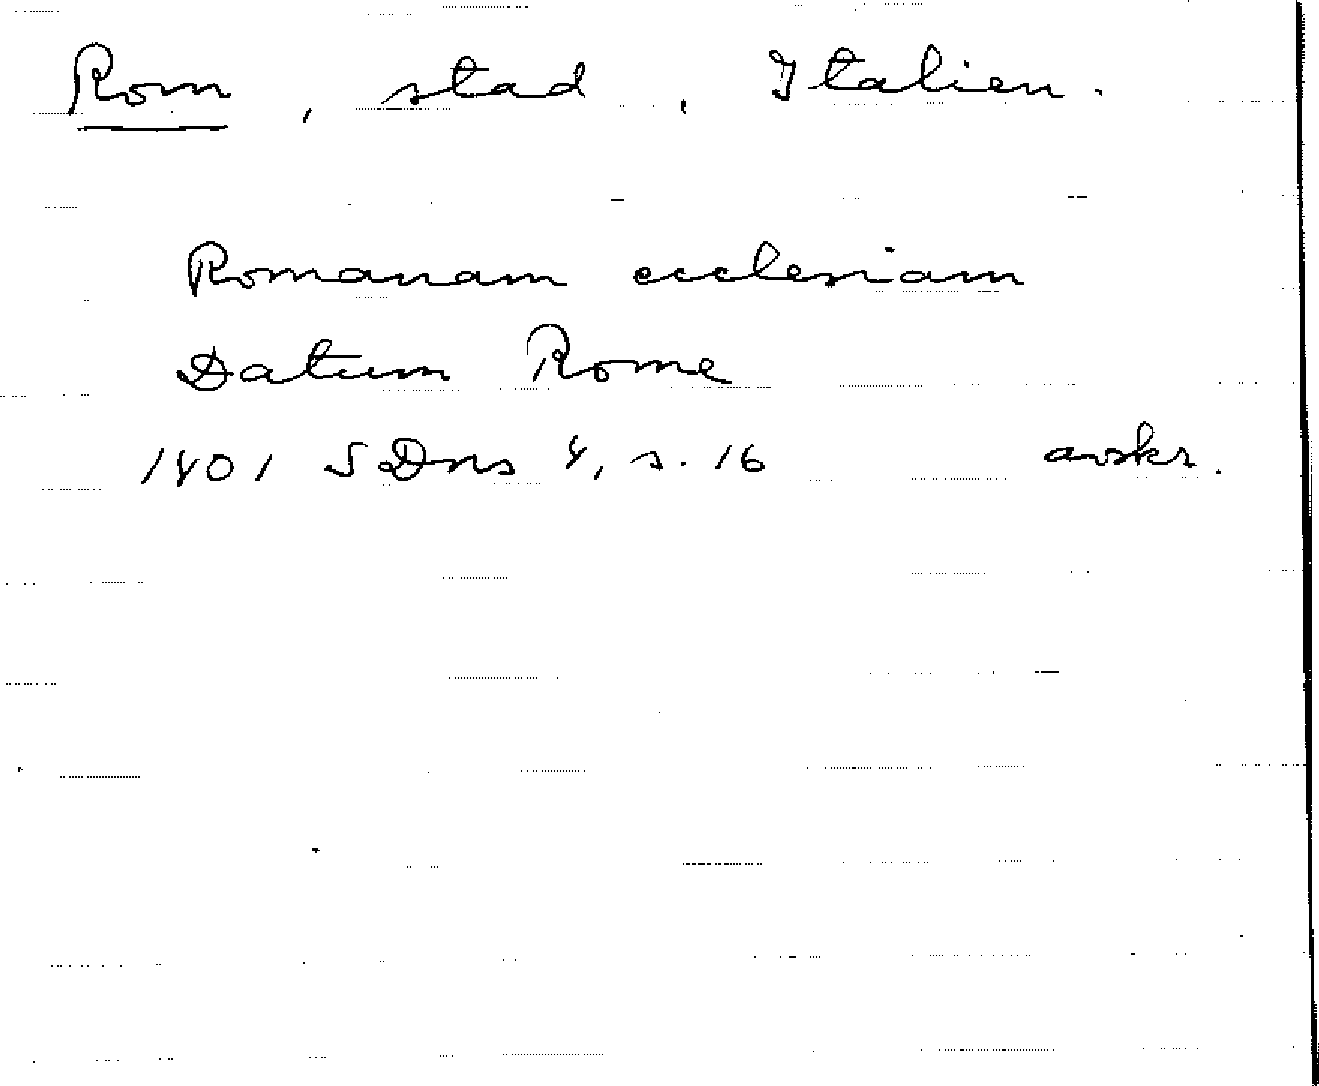 Rom, stad, Italien.
Romanam ecclesiam
Datum Rome
1401 SDns 4, s. 16 avskr.